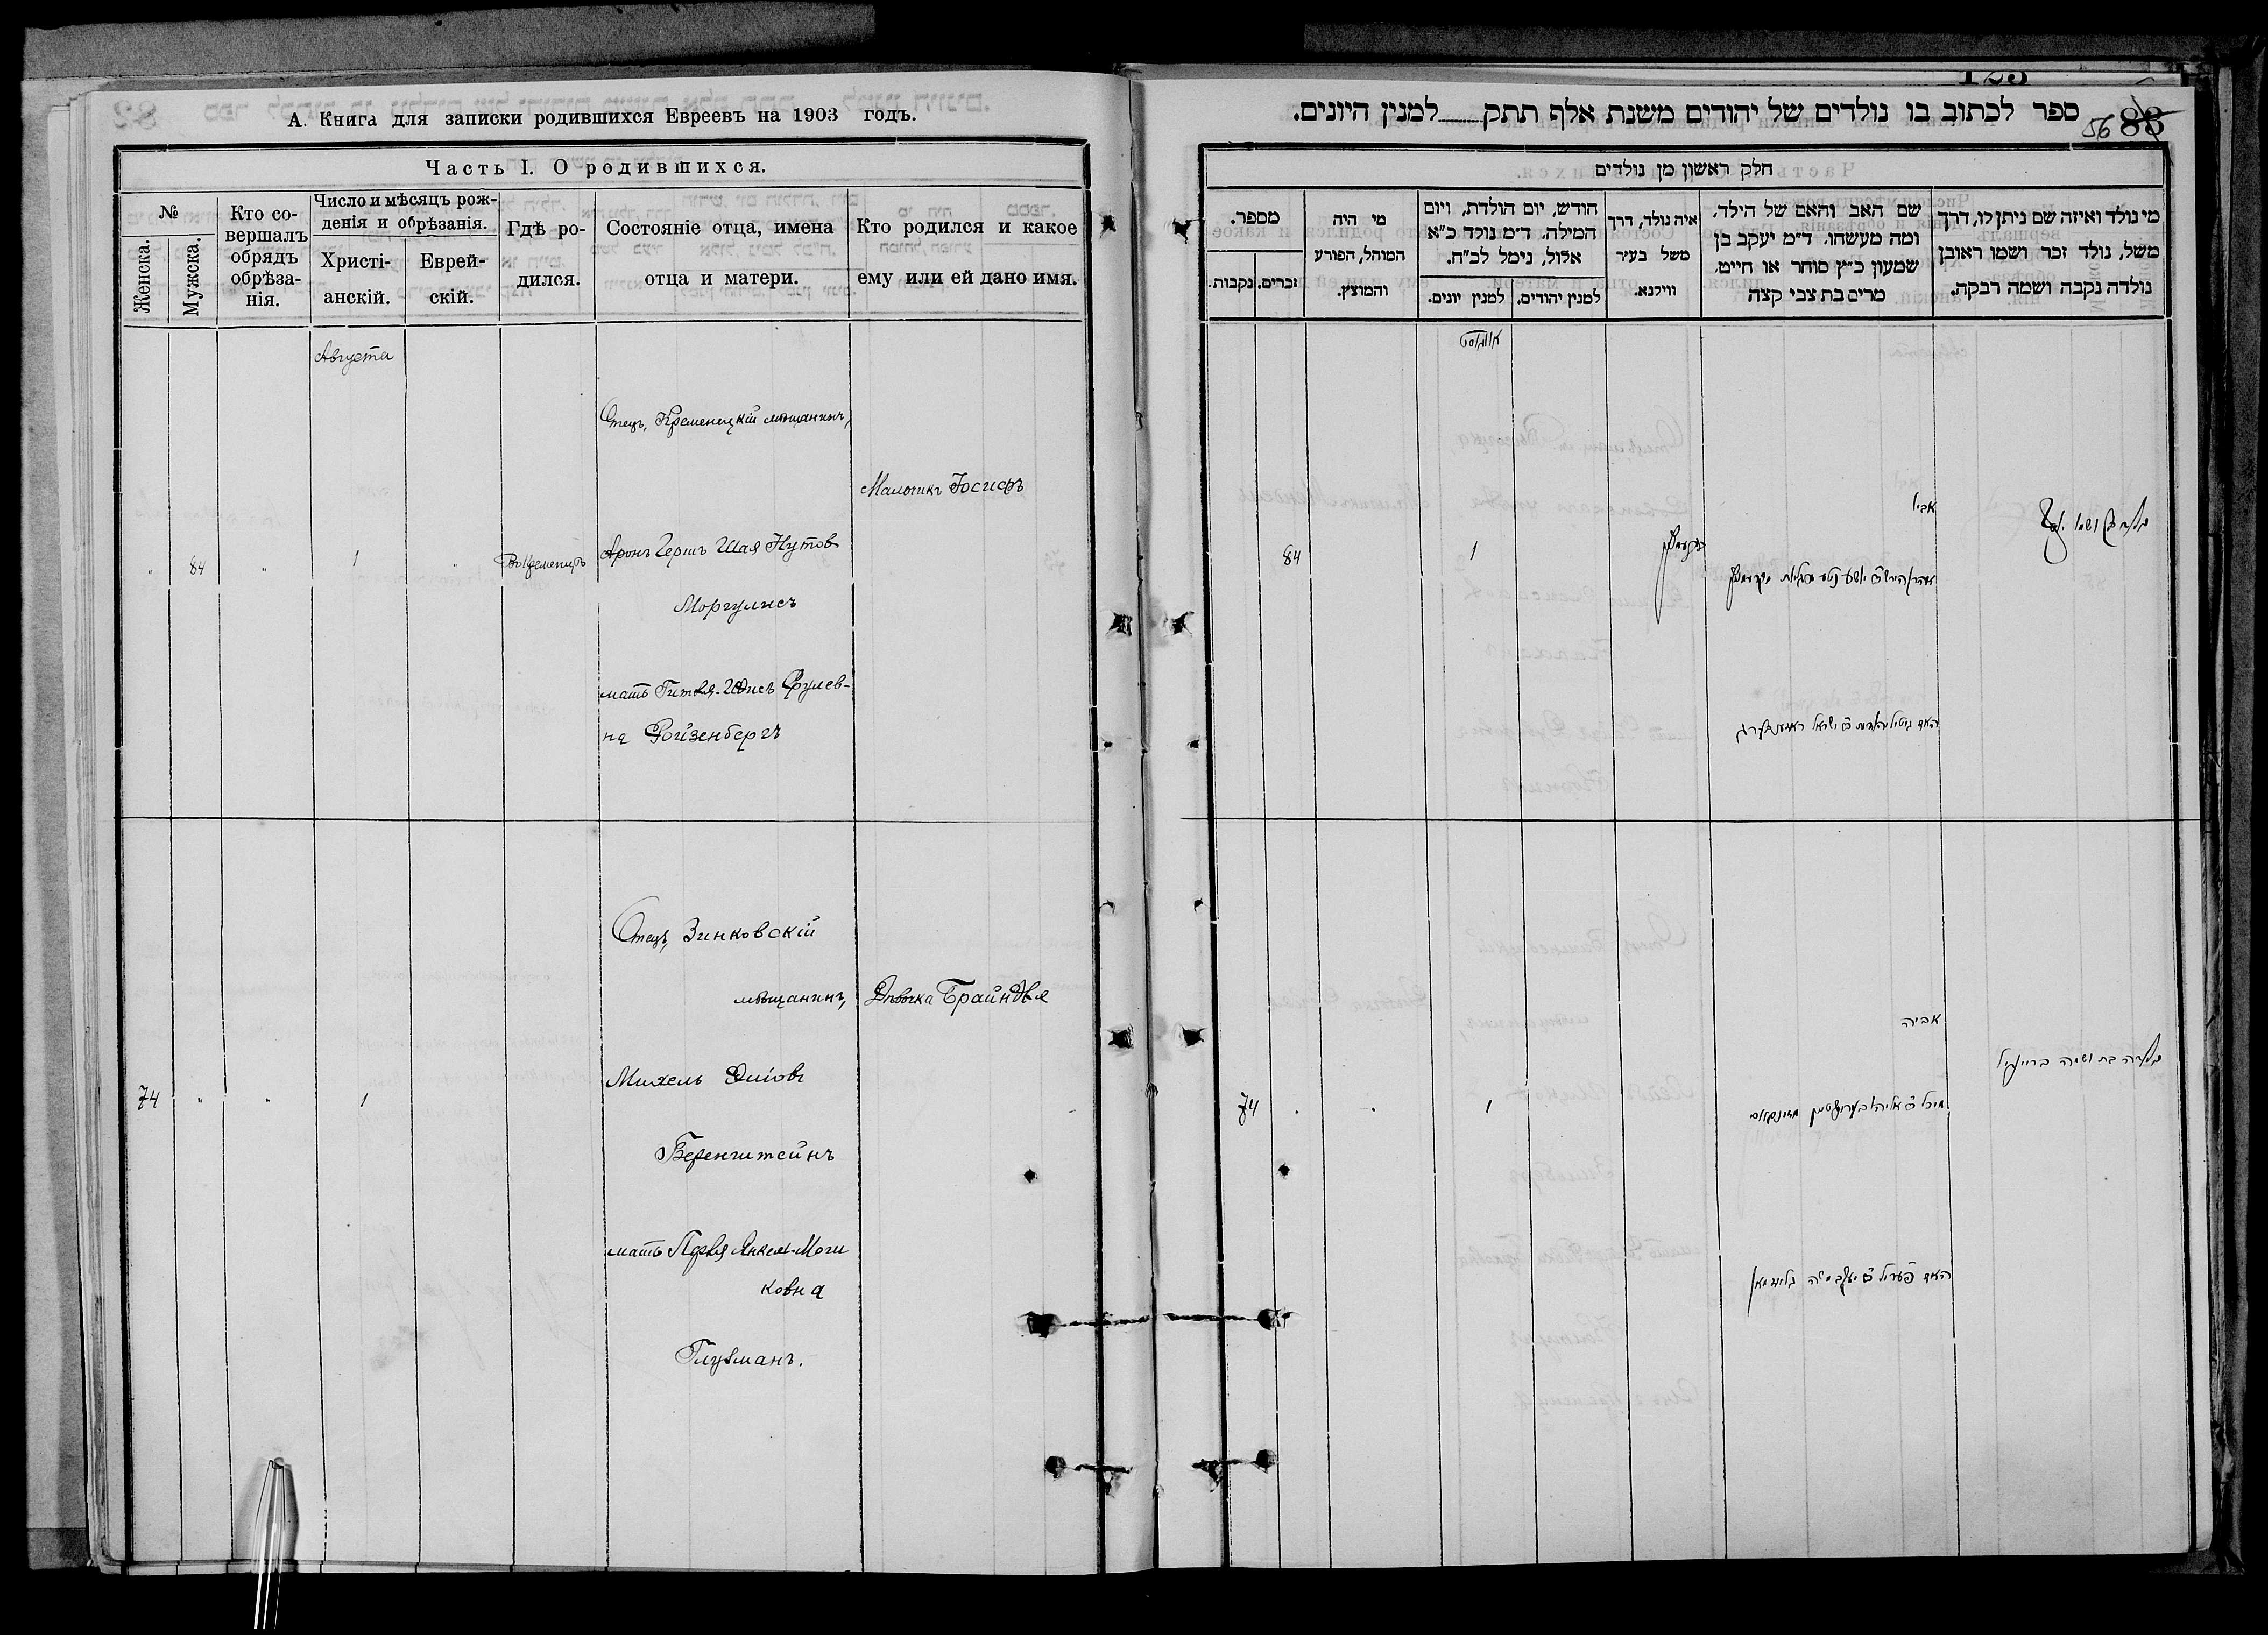 А. Книга для записки родившихся Евреевъ на 1903 годъ.
Часть I. О родившихся.
№
Женска.
Мужска.
Кто со-
вершалъ
обрядъ
обрѣза-
нія.
Число и мѣсяцъ рож-
денія и обрѣзанія.
Христі-
анскій.
Еврей-
скій.
Гдѣ ро-
дился.
Состояніе отца, имена
отца и матери.
Кто родился и какое
ему или ей дано имя.
Августа
Отецъ, Кременецкій мѣщанинъ,
Мальчикъ Іосифъ
" 84 " 1 " Въ Кременцѣ Аронъ Гершъ Шая Нутов
Моргулисъ
мать Гитля- Срулев-
на Ройзенбергъ
Отецъ, Зинковскій
мѣщанинъ, Дѣвочка Брайндля
Михель Эліовъ
74 " " 1
Беренштейнъ
мать Перля Янкель-Мош
ковна
Глузманъ.
ספר לכתוב בו נולדים של יהודים משנת אלף תתק למנין היונים.
56 83
חלק ראשון מן נולדים
מי נולד ואיזה שם ניתן לו, דרך
משל, נולד זכר ושמו ראובן
נולדה נקבה ושמה רבקה.
שם האב והאם של הילד,
ומה מעשהו. ד״מ יעקב בן
שמעון כ״ץ סוחר או חייט,
מרים בת צבי קצה
איה נולד, דרך
משל בעיר
ווילנא.
חודש, יום הולדת, ויום
המילה. ד״מ נולד כ״א
אלול, נימל לכ״ח.
למנין יהודים.
למנין יונים.
מי היה
המוהל, הפורע
והמוצץ.
מספר.
זכרים.
נקבות.
אווגוסט
אביו
84 1
אביה
נולדה בת ושמה בריינדיל
74 " " 1